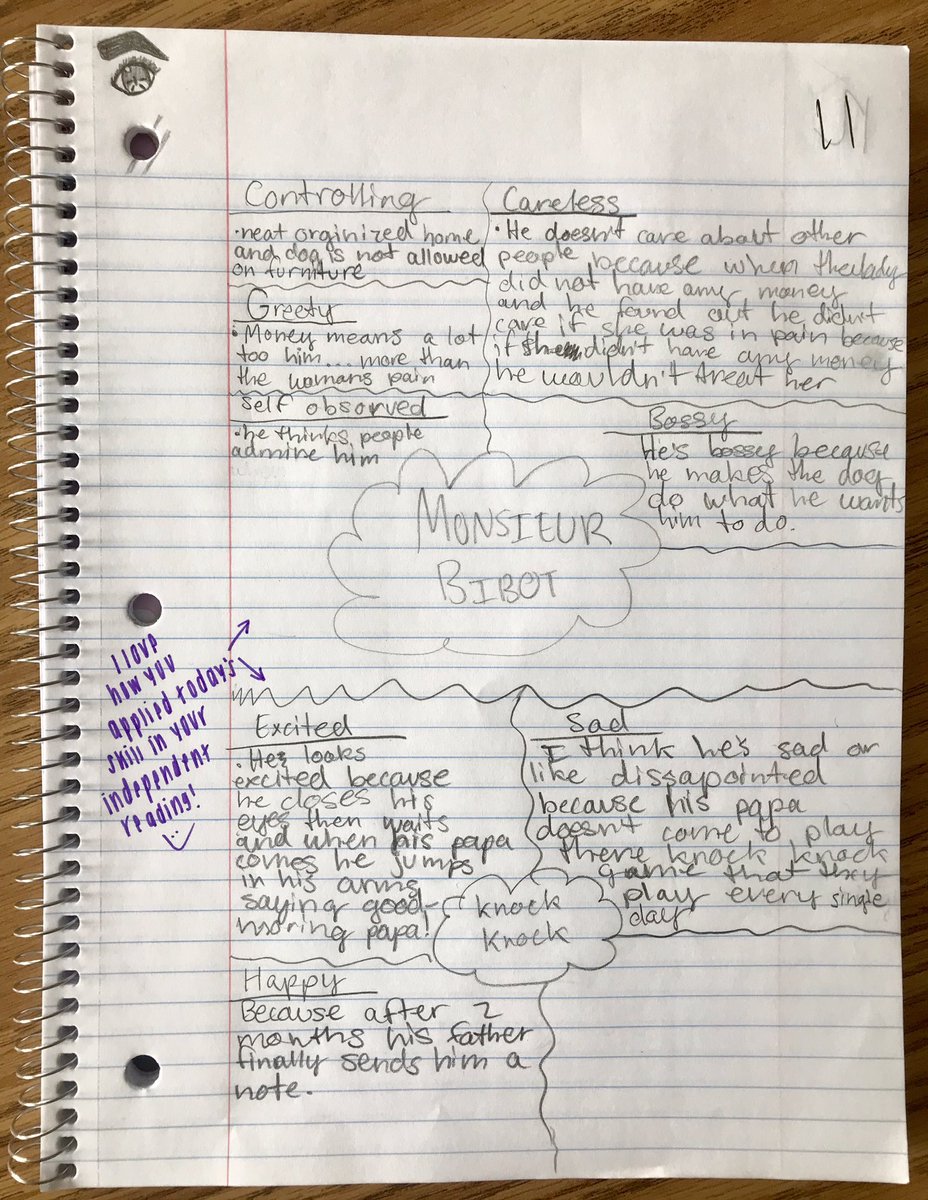 11
Controlling
•neat orginized home
and dog is not allowed
on furniture
Careless
•He doesn't care about other
people because when the lady
did not have any money
and he found out he didn't
care if she was in pain because
if she didn't have any money
he wouldn't treat her
Greety
•Money means a lot
too him...more than
the womans pain
Self observed
•he thinks people
admire him
Bossy
He's bossy because
he makes the dog
do what he wants
him to do.
MONSIEUR
BIBOT
I love
how you
applied today's
skill in your
independent
reading!
Excited
•Hes looks
excited because
he closes his
eyes then waits
and when his papa
comes he jumps
in his arms
saying good-
moring papa!
Sad
I think he's sad or
like dissapointed
because his papa
doesn't come to play
there knock knock
game that they
play every single
day
Knock
Knock
Happy
Because after 2
months his father
finally sends him a
note.